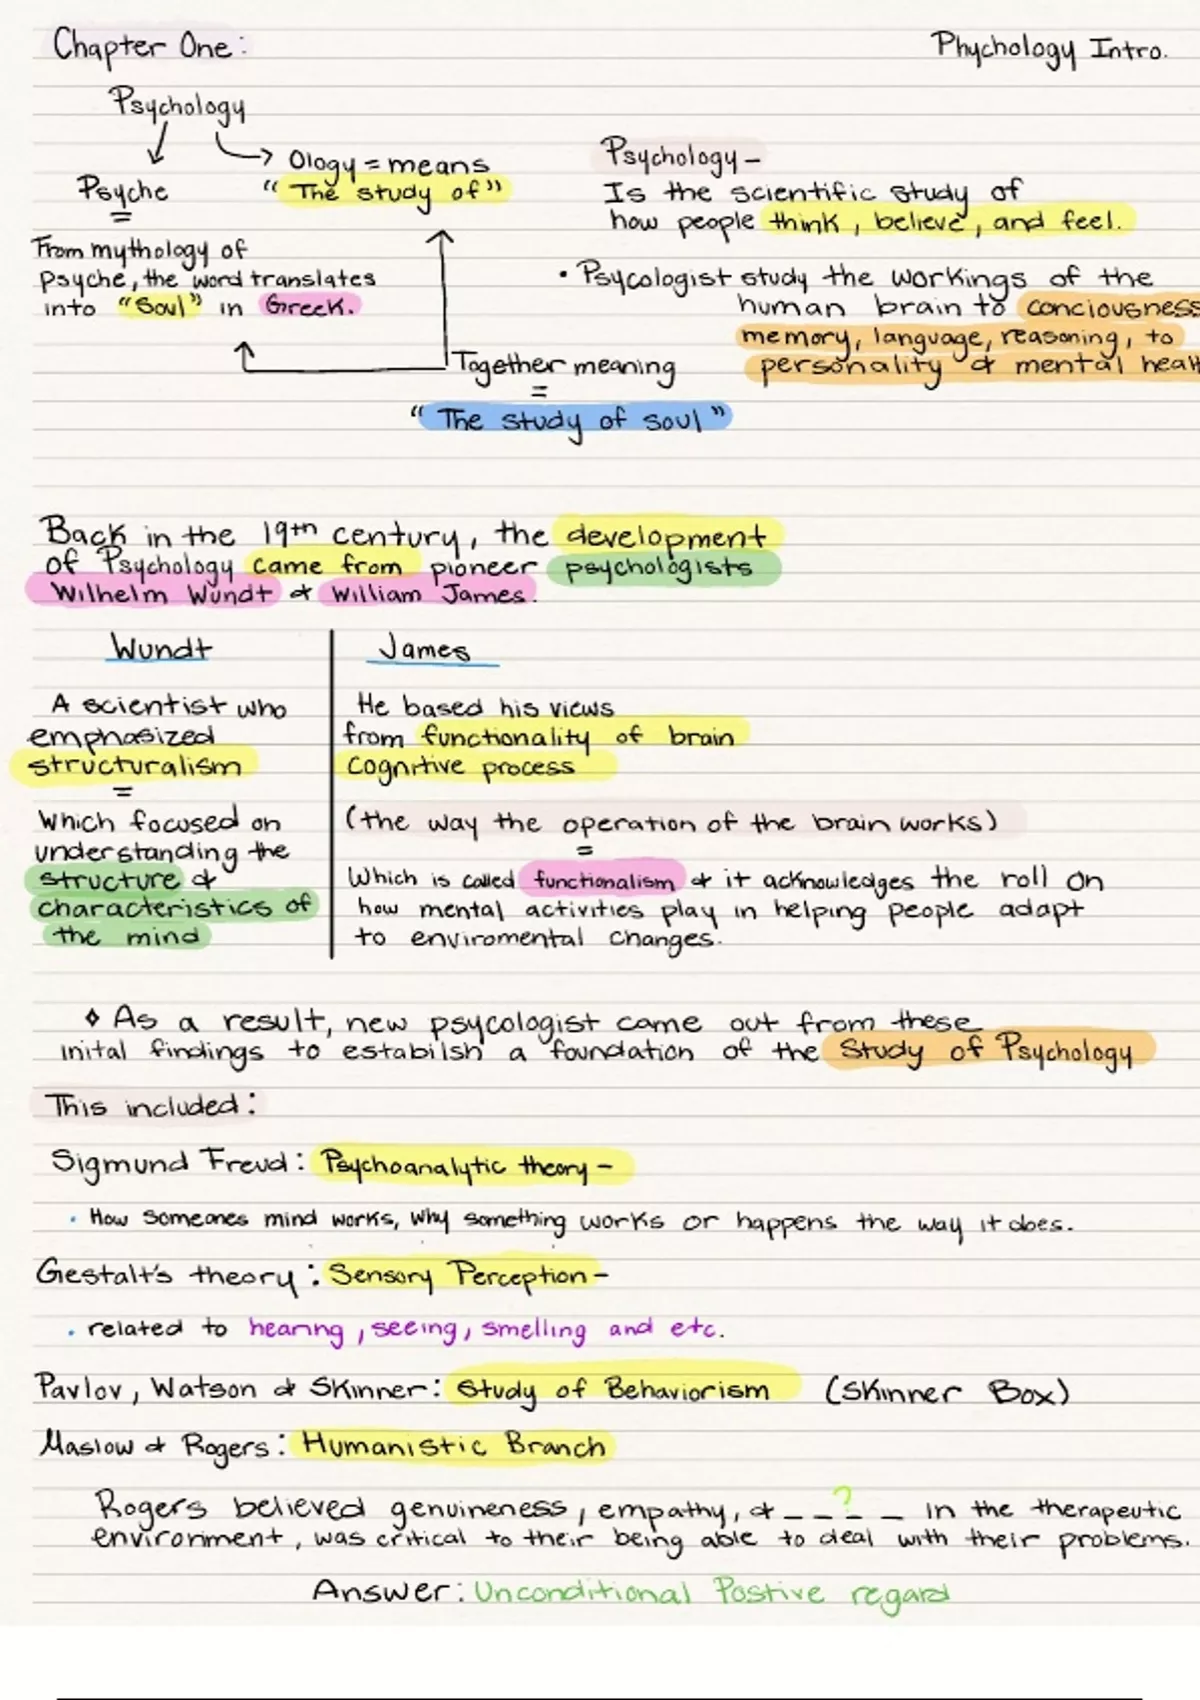 Chapter One:
Phychology Intro.
Psychology
Ology = means
"The study of"
Psyche
=
From mythology of
psyche, the word translates
into "Soul" in Greek.
Together meaning
=
"The study of soul"
Psychology -
Is the scientific study of
how people think, believe, and feel.
• Psycologist study the workings of the
human brain to conciousness
memory, language, reasoning, to
personality & mental healt
Back in the 19th century, the development
of Psychology came from pioneer psychologists
Wilhelm Wundt & William James.
Wundt
A scientist who
emphasized
structuralism
=
Which focused on
understanding the
structure &
characteristics of
the mind
James
He based his views
from functionality of brain
cognitive process
(the way the operation of the brain works)
=
Which is called functionalism & it acknowledges the roll on
how mental activities play in helping people adapt
to enviromental changes.
⋄ As a result, new psycologist came out from these
inital findings to estabilsh a foundation of the Study of Psychology
This included:
Sigmund Freud: Psychoanalytic theory -
• How someones mind works, why something works or happens the way it does.
Gestalt's theory: Sensory Perception -
• related to hearing, seeing, smelling and etc.
Pavlov, Watson & Skinner: Study of Behaviorism (Skinner Box)
Maslow & Rogers: Humanistic Branch
Rogers believed genuineness, empathy, & _ _ ? _ _ in the therapeutic
environment, was critical to their being able to deal with their problems.
Answer: Unconditional Postive regard